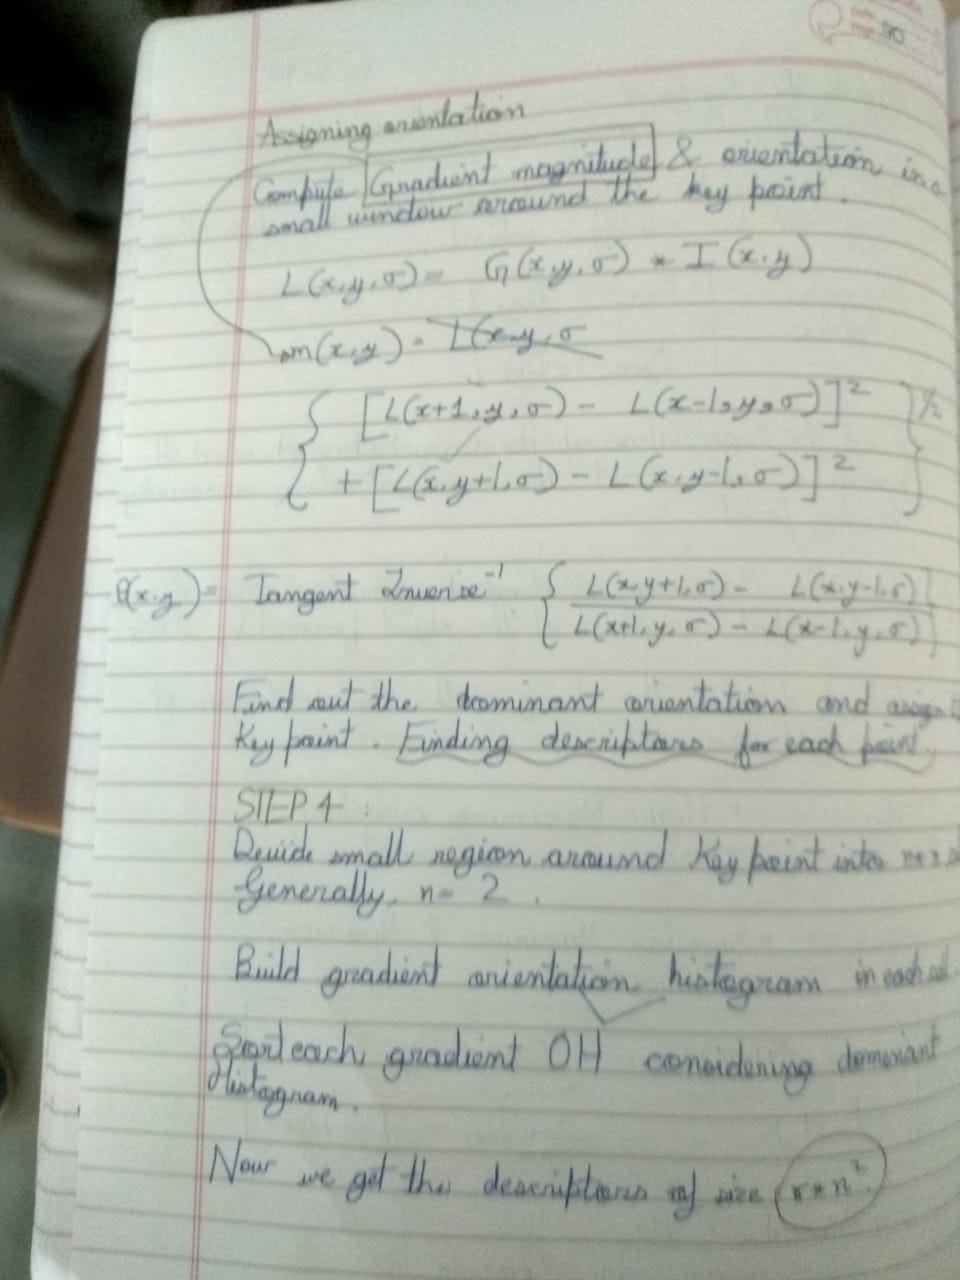 90
Assigning orientation
Compute Gradient magnitude & orientation in a
small window around the key point.
L(x,y,σ) = G(x,y,σ) * I(x,y)
m(x,y) = L(x,y,σ
{ [L(x+1,y,σ) - L(x-1,y,σ)]²
+ [L(x,y+1,σ) - L(x,y-1,σ)]² }^1/2
θ(x,y) = Tangent Inverse⁻¹ { L(x,y+1,σ) - L(x,y-1,σ)
L(x+1,y,σ) - L(x-1,y,σ) }
Find out the dominant orientation and assign
Key point. Finding descriptors for each point
STEP 4 :
Devide small region around Key point into n×n
Generally, n = 2.
Build gradient orientation histogram in each
Sort each gradient OH considering dominant
Histogram.
Now we get the descriptors of size r × n².